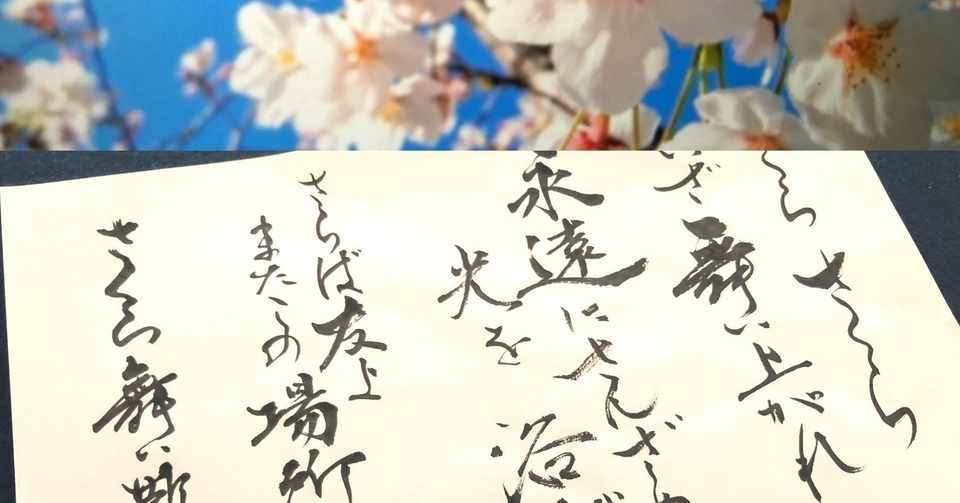 くら さくら
いざ舞い上がれ
永遠にさんざめ
光を浴
さらば友よ
またこの場所
さくら舞い散